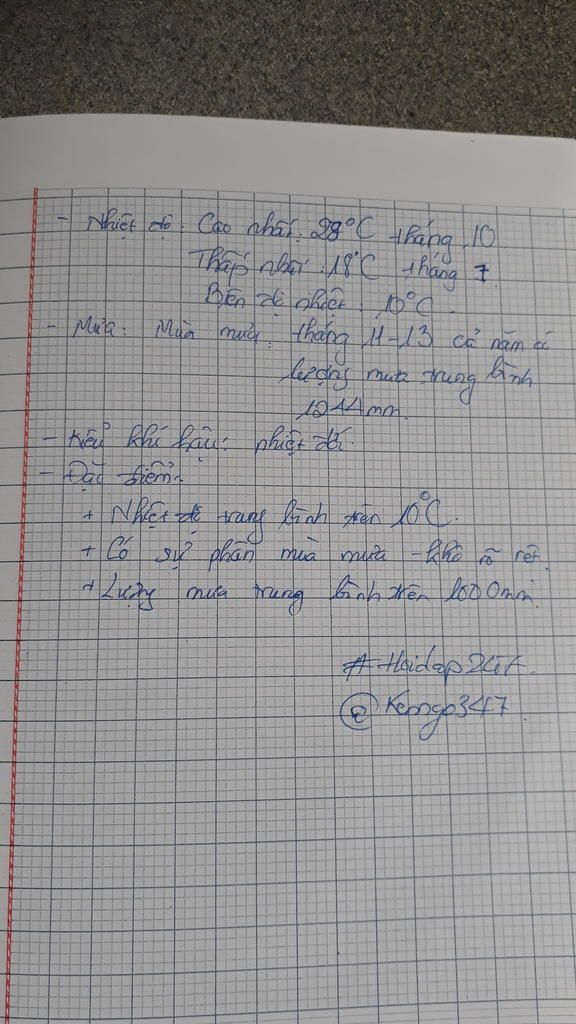 - Nhiệt độ: Cao nhất: 28°C tháng 10
Thấp nhất: 18°C tháng 7
Biên độ nhiệt: 10°C.
- Mưa: Mùa mưa: tháng 11-13 cả năm có
lượng mưa trung bình
1244mm.
- Kiểu khí hậu: nhiệt đới.
- Đặc điểm:
+ Nhiệt độ trung bình trên 10°C.
+ Có sự phân mùa mưa - khô rõ rệt.
+ Lượng mưa trung bình trên 1000mm.
# Hoidap247.
@ Kemngo347